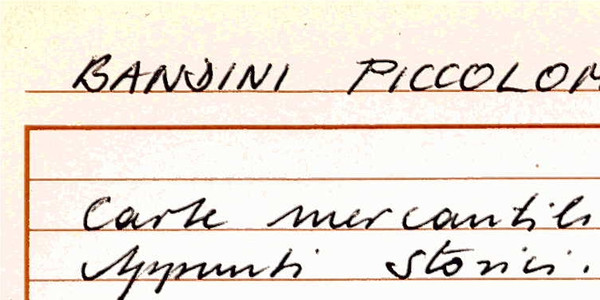 BANDINI PICCOLOM
Carte mercantili
Appunti storici.